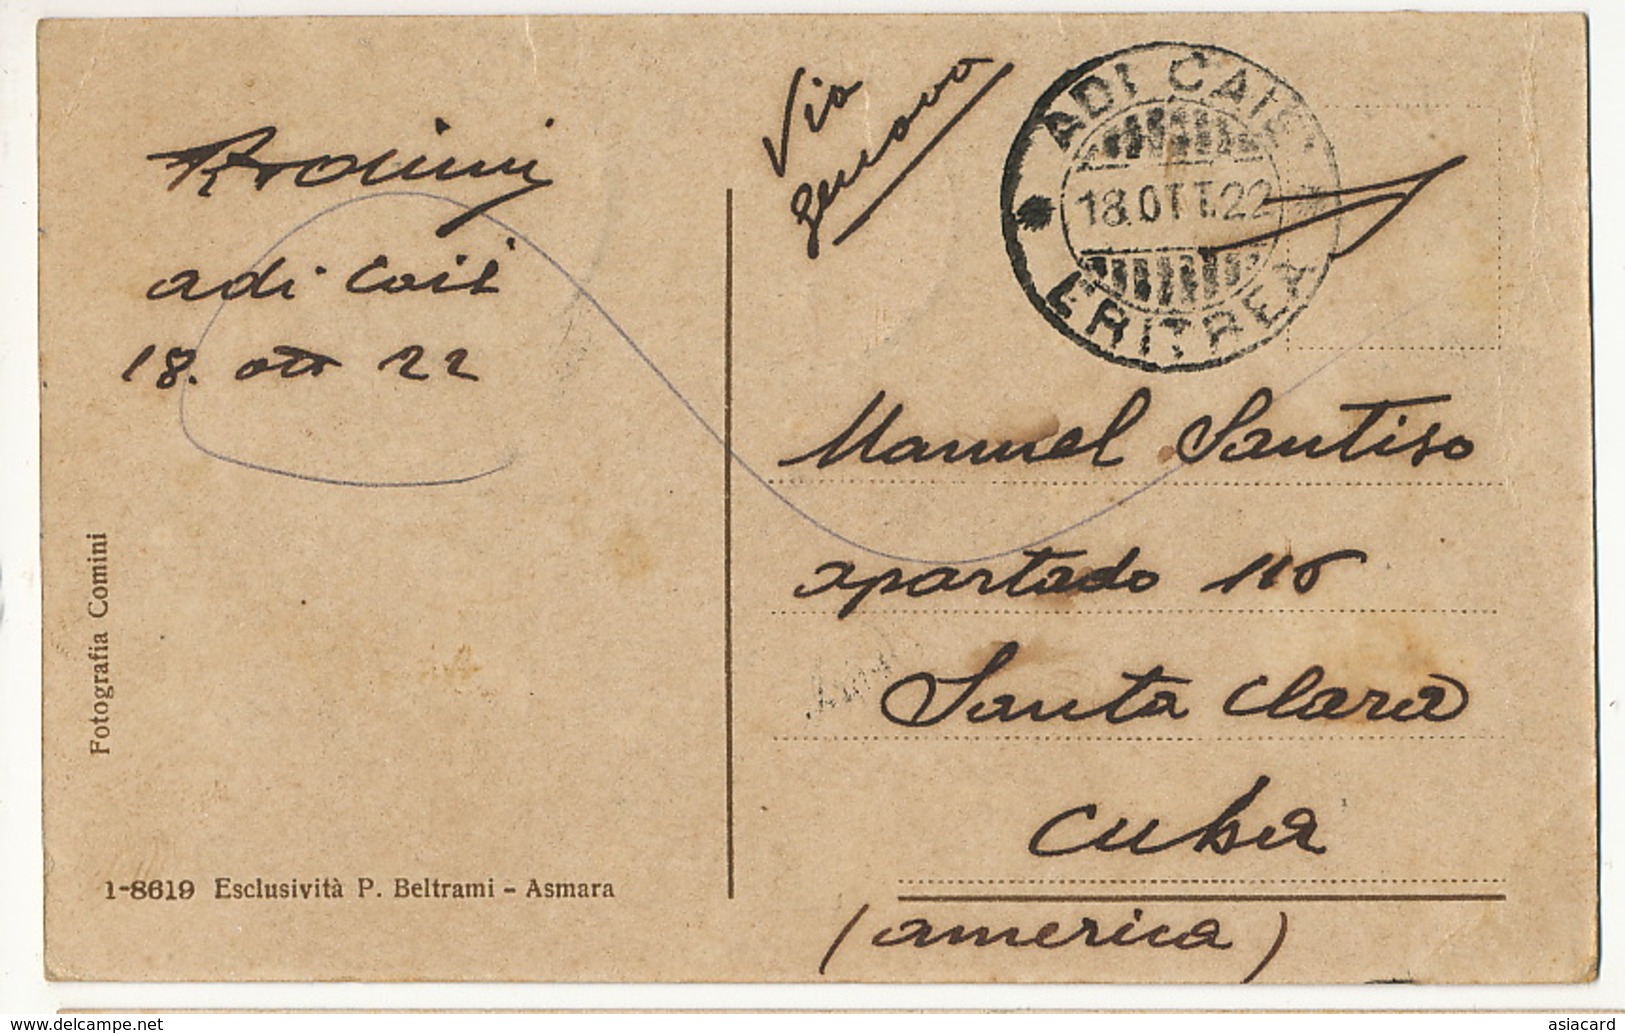 adi Caié
18. ott 22
Fotografia Comini
1-8619 Esclusività P. Beltrami - Asmara
Via
Genova
ADI CAIE
18.OTT.22
ERITREA
Manuel Santiso
apartado 116
Santa Clara
Cuba
(america)
delcampe.net
asiacard